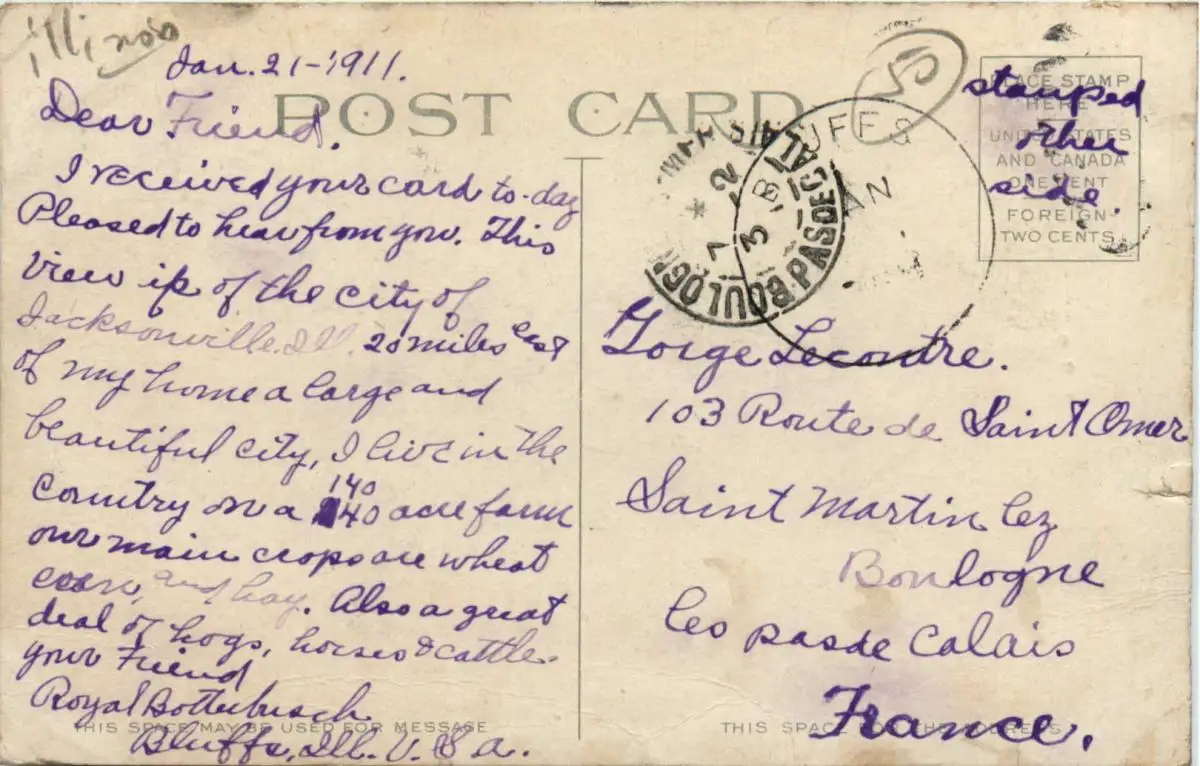 illinois
Jan. 21-1911.
POST CARD
Dear Friend.
I received your card to-day
Pleased to hear from you. This
view is of the city of
Jacksonville. Ill. 20 miles east
of my home a large and
beautiful city, I live in the
140
country on a 40 acre farm
our main crops are wheat
corn, and hay. Also a great
deal of hogs, horses & cattle.
your Friend
Royal Botterbusch
THIS SPACE MAY BE USED FOR MESSAGE
Bluffs, Ill. U.S.A.
50
PLACE STAMP
HERE
UNITED STATES
AND CANADA
ONE CENT
FOREIGN
TWO CENTS
stamped
other
side.
UFFS
AN
BOULOGN
PAS DE CALAIS
Gorge Lecontre.
103 Route de Saint Omer
Saint Martin lez
Boulogne
les pas de Calais
France.
THIS SPAC